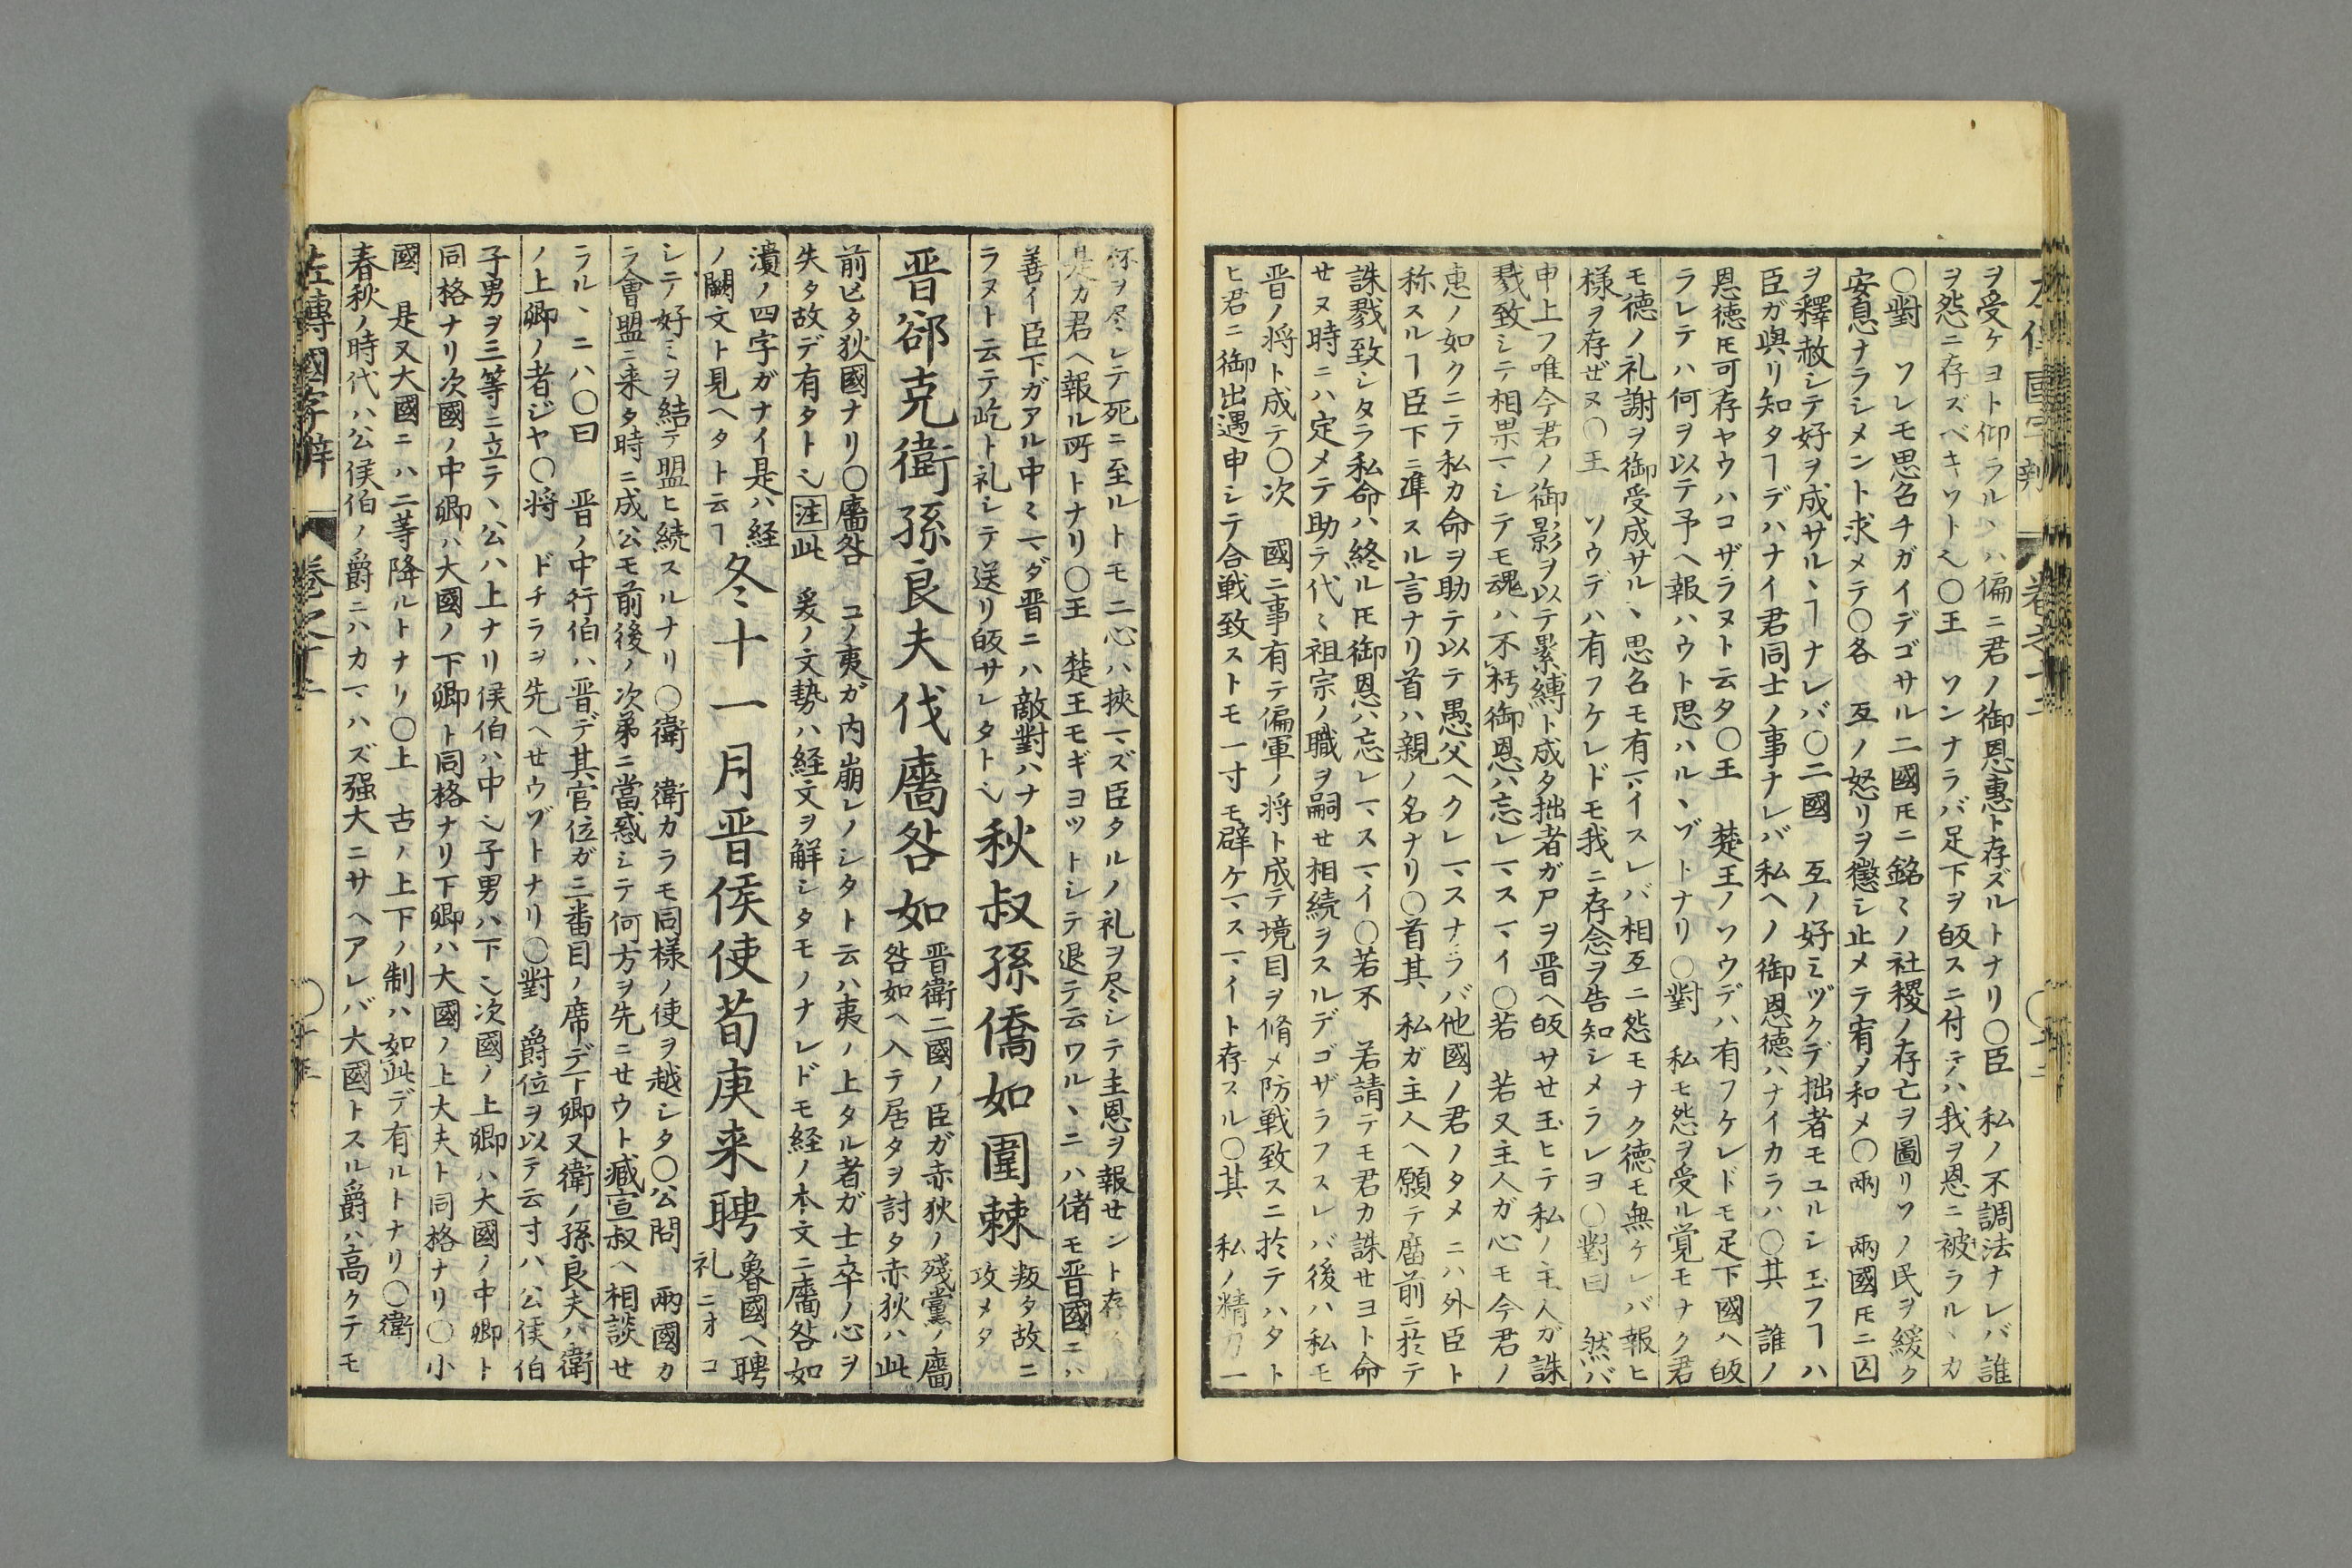 ヲ受ケヨト仰ラルヽハ偏ニ君ノ御恩惠ト存ズルトナリ〇臣 私ノ不調法ナレバ誰
ヲ怨ニ存ズベキソト〇王 ソンナラバ足下ヲ皈スニ付テハ我ヲ恩ニ被ラルヽカ
〇對 ソレモ思召チガイデゴサル二國𪜈ニ銘〻ノ社稷ノ存亡ヲ圖リソノ民ヲ緩ク
安息ナラシメント求メテ〇各 互ノ怒リヲ懲シ止メテ宥メ和メ〇兩 兩國𪜈ニ囚
ヲ釋赦シテ好ヲ成サルヽヿナレバ〇二國 互ノ好ミヅクデ拙者モユルシ玉フヿハ
臣ガ與リ知タヿデハナイ君同士ノ事ナレバ私ヘノ御恩徳ハナイカラハ〇其 誰ノ
恩徳𪜈可存ヤウハコザラヌト云タ〇王 楚王ノソウデハ有フケレドモ足下國ヘ皈
ラレテハ何ヲ以テ予ヘ報ハウト思ハルヽゾトナリ〇對 私モ怨ヲ受ル覚モナク君
モ徳ノ礼謝ヲ御受成サルヽ思召モ有マイスレバ相互ニ怨モナク徳モ無ケレバ報ヒ
様ヲ存ゼヌ〇王 ソウデハ有フケレドモ我ニ存念ヲ告知シメラレヨ〇對曰 然バ
申上フ唯今君ノ御影ヲ以テ累縛ト成タ拙者ガ尸ヲ晋ヘ皈サセ玉ヒテ私ノ主人ガ誅
戮致シテ相果マシテモ魂ハ不朽御恩ハ忘レマスマイ〇若 若又主人ガ心モ今君ノ
惠ノ如クニテ私カ命ヲ助テ以テ愚父ヘクレマスナラバ他國ノ君ノタメニハ外臣ト
称スルヿ臣下ニ準スル言ナリ首ハ親ノ名ナリ〇首其 私ガ主人ヘ願テ廟前ニ於テ
誅戮致シタラ私命ハ終ル𪜈御恩ハ忘レマスマイ〇若不 若請テモ君カ誅セヨト命
セヌ時ニハ定メテ助テ代〻祖宗ノ職ヲ嗣セ相続ヲスルデゴザラフスレバ後ハ私モ
晋ノ将ト成テ〇次 國ニ事有テ偏軍ノ将ト成テ境目ヲ脩メ防戦致スニ於テハタト
ヒ君ニ御出遇申シテ合戦致ストモ一寸モ辟ケマスマイト存スル〇其 私ノ精力一
杯ヲ尽シテ死ニ至ルトモ二心ハ挾マズ臣タルノ礼ヲ尽シテ主恩ヲ報セント存
是カ君ヘ報ル所トナリ〇王 楚王モギヨツトシテ退テ云ワルヽニハ偖モ晋國ニハ
善イ臣下ガアル中〻マダ晋ニハ敵對ハナ
ラヌト云テ屹ト礼シテ送リ皈サレタト
秋叔孫僑如圍棘
叛タ故ニ
攻メタ
晋郤克衛孫良夫伐廧咎如
晋衛二國ノ臣ガ赤狄ノ殘黨ノ廧
咎如ヘ入テ居タヲ討タ赤狄ハ此
前亡タ狄國ナリ〇廧咎 コノ夷ガ内崩レノシタト云ハ夷ノ上タル者ガ士卒ノ心ヲ
失タ故デ有タト 注此 爰ノ文勢ハ経文ヲ解シタモノナレドモ経ノ本文ニ廧咎如
潰ノ四字ガナイ是ハ経
ノ闕文ト見ヘタト云ヿ
冬十一月晋侯使荀庚来聘
魯國ヘ聘
礼ニオコ
シテ好ミヲ結テ盟ヒ続スルナリ〇衛 衛カラモ同様ノ使ヲ越シタ〇公問 兩國カ
ラ會盟ニ来タ時ニ成公モ前後ノ次第ニ當惑シテ何方ヲ先ニセウト臧宣叔ヘ相談セ
ラルヽニハ〇曰 晋ノ中行伯ハ晋デ其官位ガ三番目ノ席デ下卿又衛ノ孫良夫ハ衛
ノ上卿ノ者ジヤ〇将 ドチラヲ先ヘセウゾトナリ〇對 爵位ヲ以テ云寸ハ公侯伯
子男ヲ三等ニ立テヽ公ハ上ナリ侯伯ハ中子男ハ下次國ノ上卿ハ大國ノ中卿ト
同格ナリ次國ノ中卿ハ大國ノ下卿ト同格ナリ下卿ハ大國ノ上大夫ト同格ナリ〇小
國 是又大國ニハ二等降ルトナリ〇上 古ノ上下ノ制ハ如此デ有ルトナリ〇衛
春秋ノ時代ハ公侯伯ノ爵ニハカマハズ强大ニサヘアレバ大國トスル爵ハ高クテモ
左傳國字辯 卷之十二